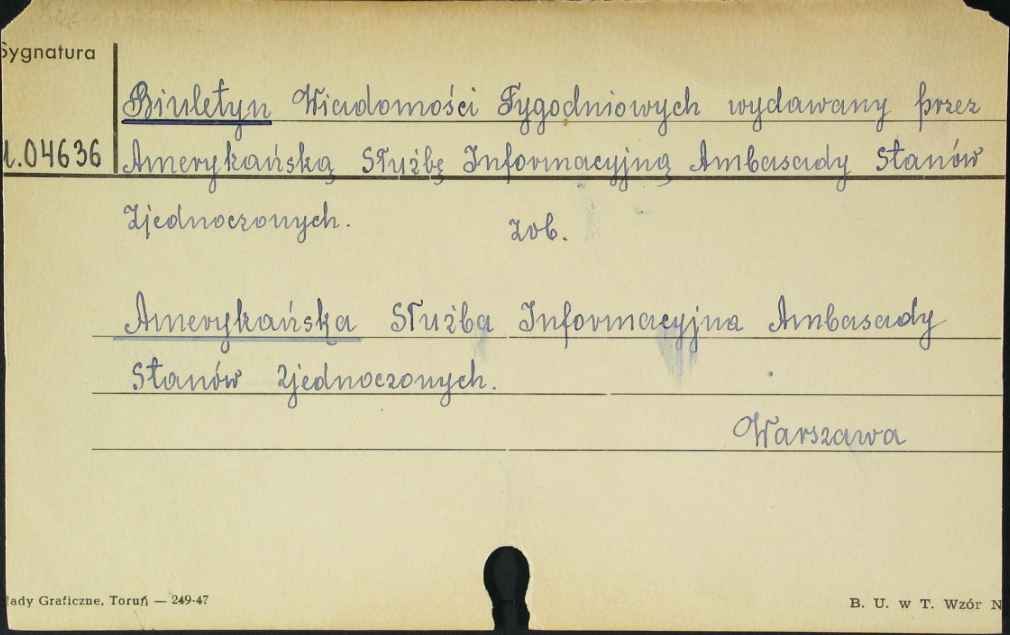 Sygnatura
Biuletyn Wiadomości Tygodniowych wydawany przez
.04636 Amerykańską Służbę Informacyjną Ambasady Stanów
Zjednoczonych. zob.
Amerykańska Służba Informacyjna Ambasady
Stanów Zjednoczonych.
Warszawa
łady Graficzne, Toruń — 249-47 B. U. w T. Wzór N